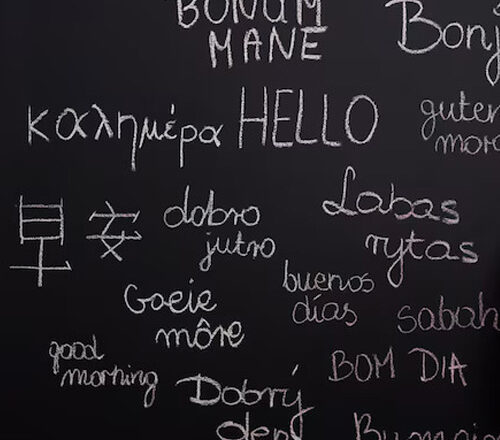 BONUM
MANE
Bonj
καλημέρα
HELLO
guten
mor
早安
dobro
jutro
Labas
rytas
Goeie
môre
buenos
días
sabah
good
morning
BOM DIA
Dobrý
den